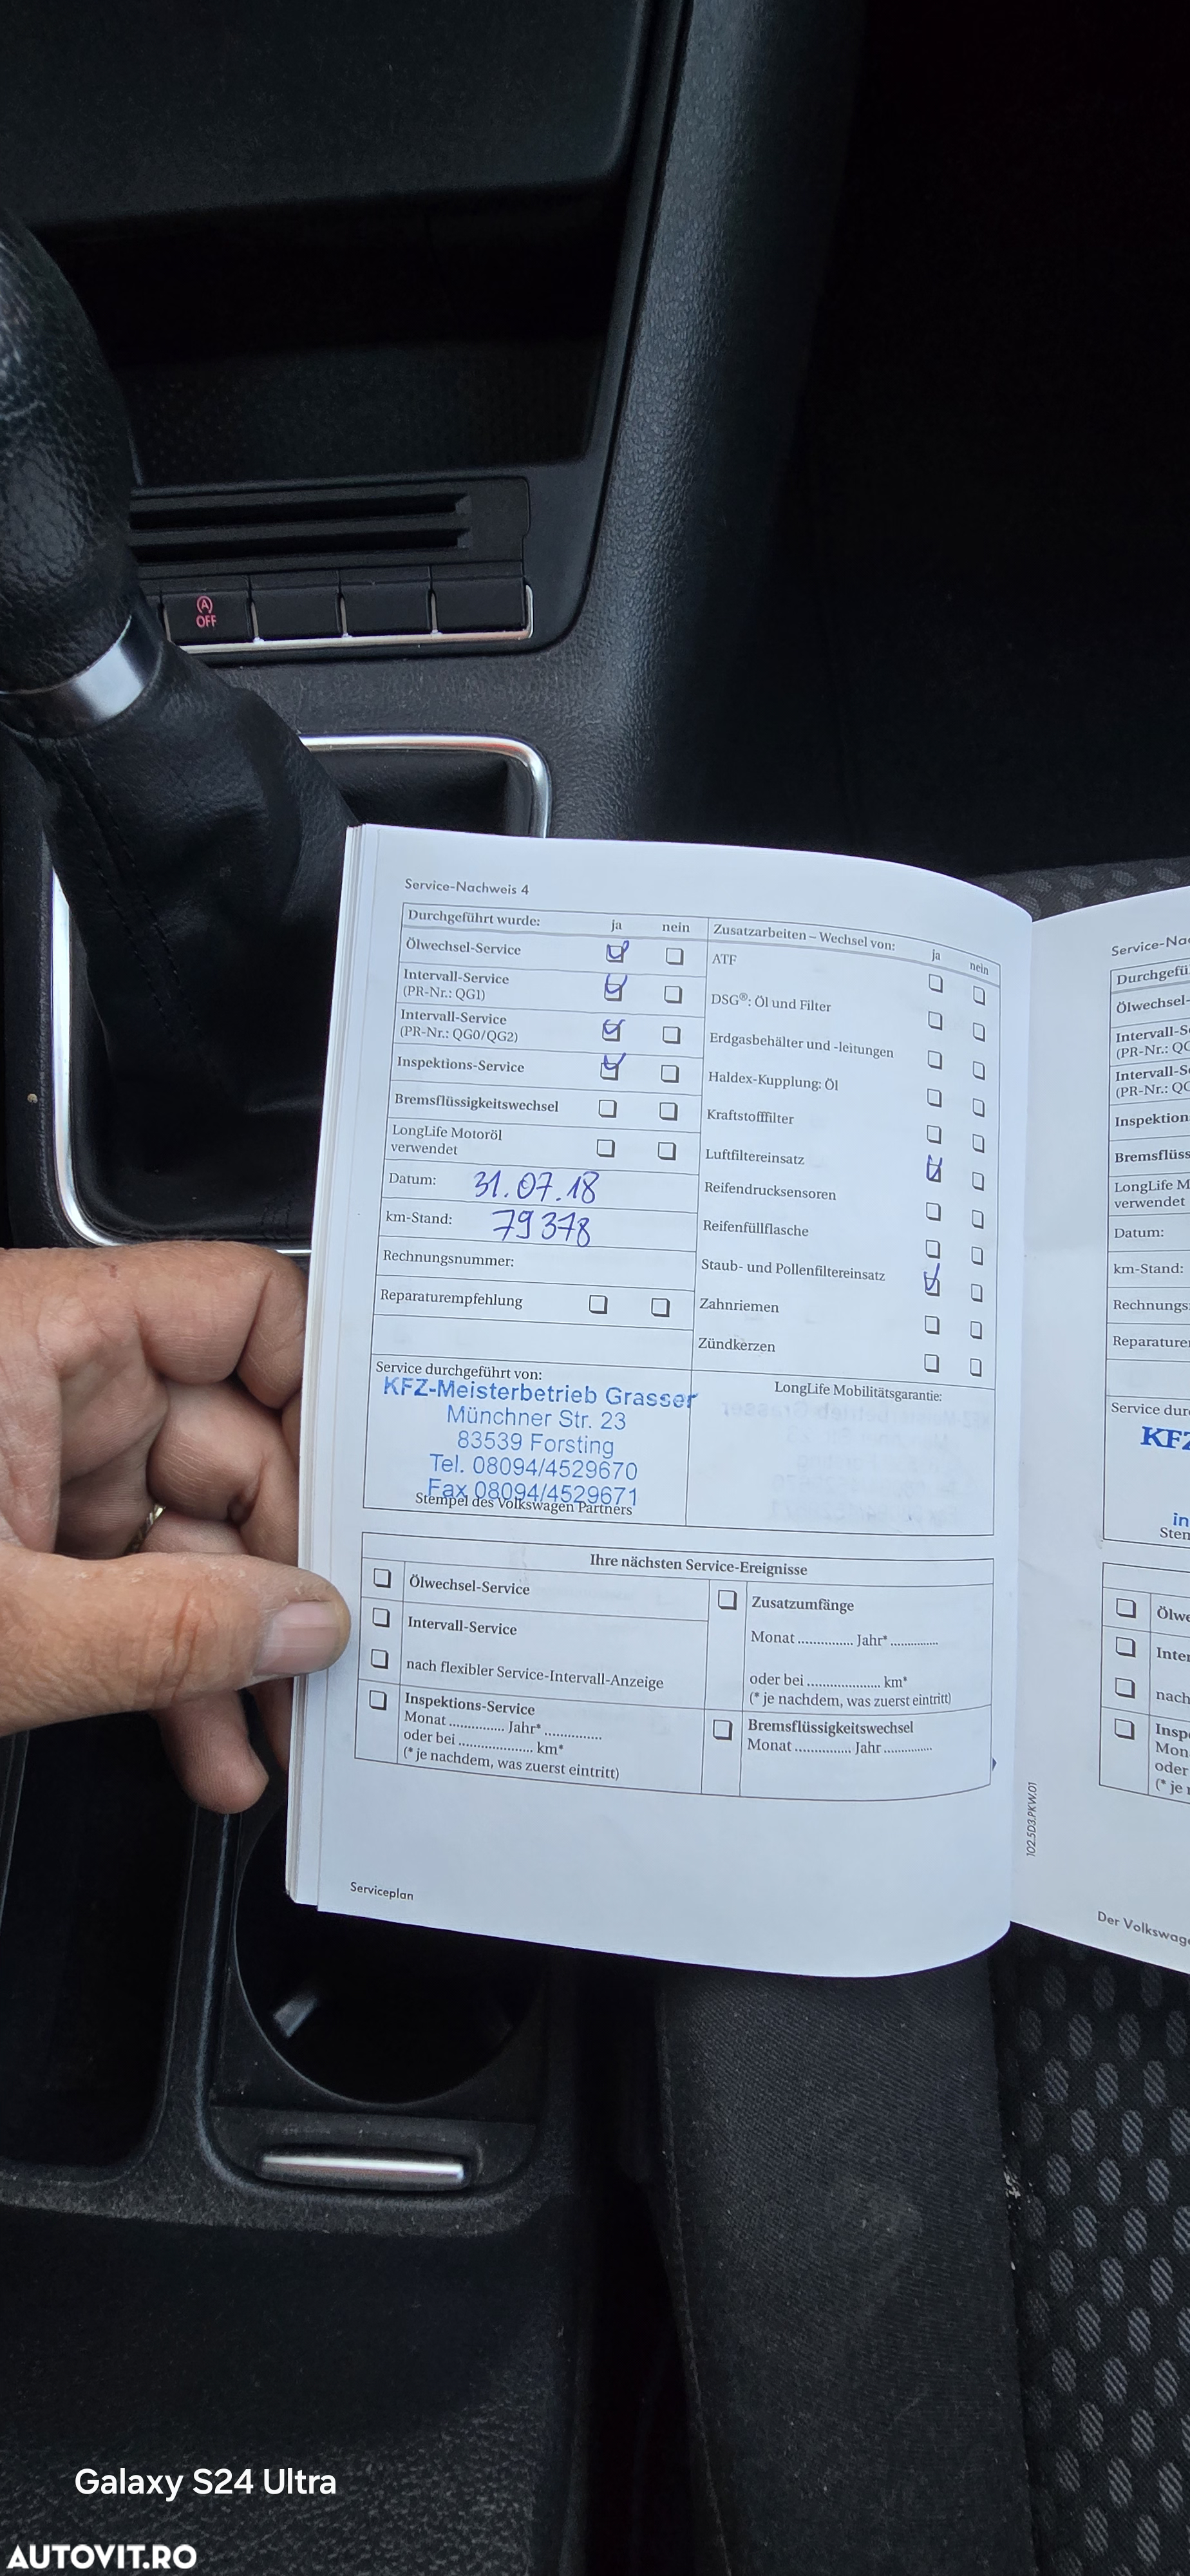 A
OFF
Service-Nachweis 4
Durchgeführt wurde: ja nein
Ölwechsel-Service
Intervall-Service
(PR-Nr.: QG1)
Intervall-Service
(PR-Nr.: QG0/QG2)
Inspektions-Service
Bremsflüssigkeitswechsel
LongLife Motoröl
verwendet
Datum: 31.07.18
km-Stand: 79378
Rechnungsnummer:
Reparaturempfehlung
Zusatzarbeiten – Wechsel von: ja nein
ATF
DSG®: Öl und Filter
Erdgasbehälter und -leitungen
Haldex-Kupplung: Öl
Kraftstofffilter
Luftfiltereinsatz
Reifendrucksensoren
Reifenfüllflasche
Staub- und Pollenfiltereinsatz
Zahnriemen
Zündkerzen
Service durchgeführt von:
KFZ-Meisterbetrieb Grasser
Münchner Str. 23
83539 Forsting
Tel. 08094/4529670
Fax 08094/4529671
Stempel des Volkswagen Partners
LongLife Mobilitätsgarantie:
Ihre nächsten Service-Ereignisse
Ölwechsel-Service
Intervall-Service
nach flexibler Service-Intervall-Anzeige
Inspektions-Service
Monat .............. Jahr* ..............
oder bei ................... km*
(* je nachdem, was zuerst eintritt)
Zusatzumfänge
Monat .............. Jahr* ............
oder bei ................... km*
(* je nachdem, was zuerst eintritt)
Bremsflüssigkeitswechsel
Monat .............. Jahr ............
Serviceplan
102.5D3.PKW.01
Service-Na
Durchgefü
Ölwechsel-
Intervall-S
(PR-Nr.: QG
Intervall-Se
(PR-Nr.: QG
Inspektion
Bremsflüss
LongLife M
verwendet
Datum:
km-Stand:
Rechnungs
Reparature
Service dur
KFZ
in
Sten
Ölwe
Inter
nach
Inspe
Mon
oder
(* je n
Der Volkswage
Galaxy S24 Ultra
AUTOVIT.RO